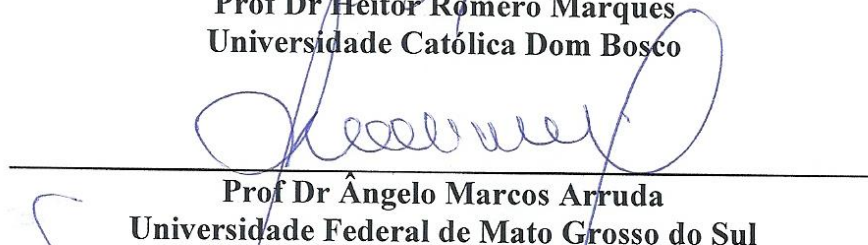 Prof Dr Heitor Romero Marques
Universidade Católica Dom Bosco
Prof Dr Ângelo Marcos Arruda
Universidade Federal de Mato Grosso do Sul